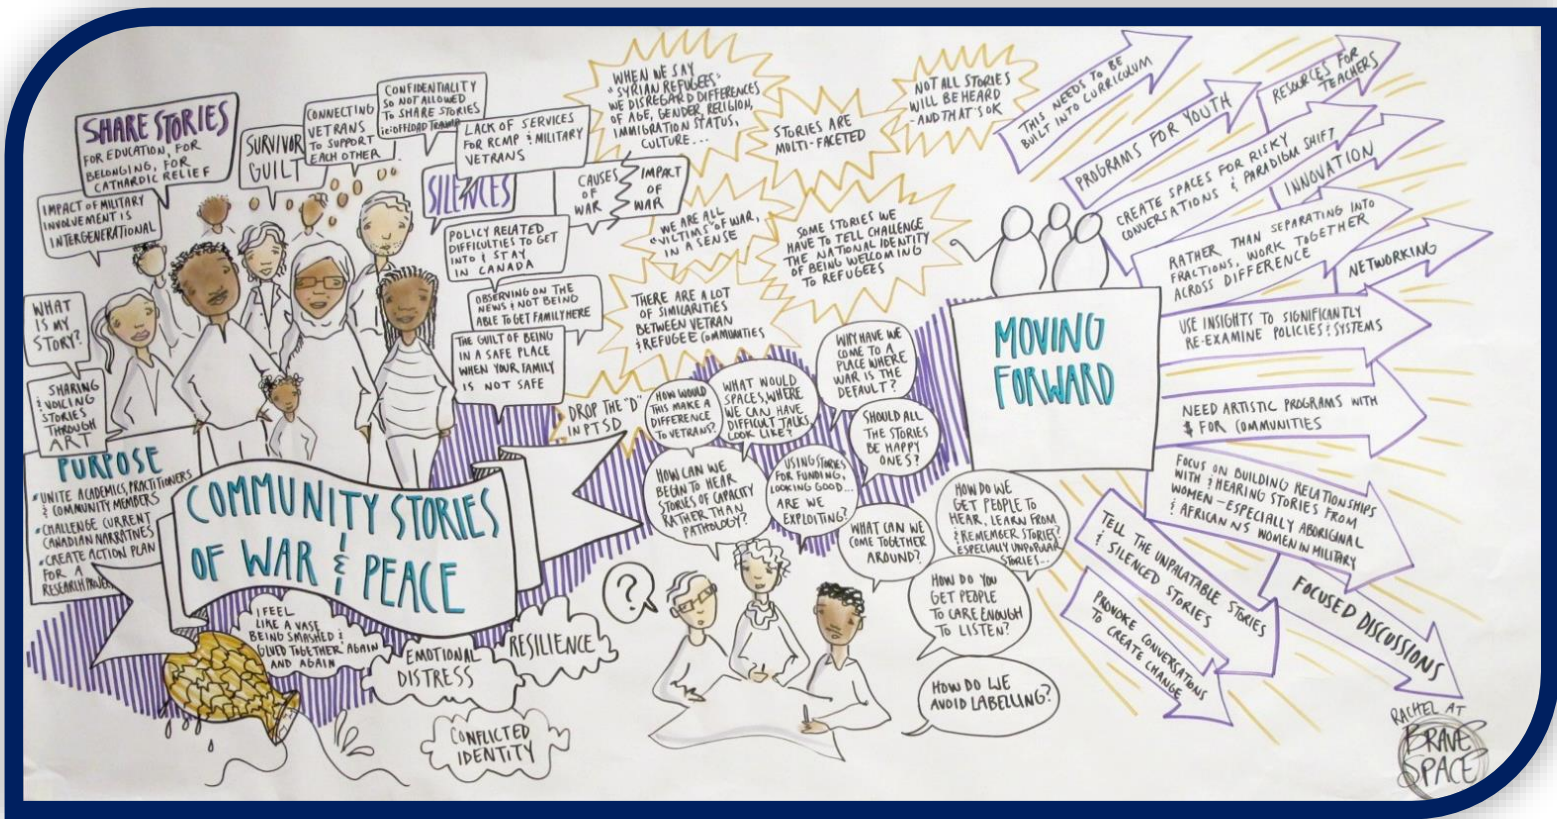 SHARE STORIES
FOR EDUCATION, FOR
BELONGING, FOR
CATHARDIC RELIEF
IMPACT OF MILITARY
INVOLVEMENT IS
INTERGENERATIONAL
WHAT
IS MY
STORY?
SHARING
& VOICING
STORIES
THROUGH
ART
SURVIVOR
GUILT
CONNECTING
VETRANS
TO SUPPORT
EACH OTHER
CONFIDENTIALITY
SO NOT ALLOWED
TO SHARE STORIES
ie: OFFLOAD TRAUMA
LACK OF SERVICES
FOR RCMP & MILITARY
VETRANS
SILENCES
CAUSES
OF
WAR
IMPACT
OF
WAR
POLICY RELATED
DIFFICULTIES TO GET
INTO & STAY
IN CANADA
OBSERVING ON THE
NEWS & NOT BEING
ABLE TO GET FAMILY HERE
THE GUILT OF BEING
IN A SAFE PLACE
WHEN YOUR FAMILY
IS NOT SAFE
PURPOSE
• UNITE ACADEMICS, PRACTITIONERS
& COMMUNITY MEMBERS
• CHALLENGE CURRENT
CANADIAN NARRATIVES
• CREATE ACTION PLAN
FOR A
RESEARCH PROJECT
COMMUNITY STORIES
OF WAR & PEACE
I FEEL
LIKE A VASE
BEING SMASHED &
GLUED TOGETHER AGAIN
AND AGAIN
EMOTIONAL
DISTRESS
RESILIENCE
CONFLICTED
IDENTITY
WHEN WE SAY
"SYRIAN REFUGEES"
WE DISREGARD DIFFERENCES
OF AGE, GENDER, RELIGION,
IMMIGRATION STATUS,
CULTURE...
STORIES ARE
MULTI-FACETED
NOT ALL STORIES
WILL BE HEARD
- AND THAT'S OK
WE ARE ALL
"VICTIMS" OF WAR,
IN A SENSE
SOME STORIES WE
HAVE TO TELL CHALLENGE
THE NATIONAL IDENTITY
OF BEING WELCOMING
TO REFUGEES
THERE ARE A LOT
OF SIMILARITIES
BETWEEN VETRAN
& REFUGEE COMMUNITIES
DROP THE "D"
IN PTSD
HOW WOULD
THIS MAKE A
DIFFERENCE
TO VETRANS?
WHAT WOULD
SPACES, WHERE
WE CAN HAVE
DIFFICULT TALKS,
LOOK LIKE?
WHY HAVE WE
COME TO A
PLACE WHERE
WAR IS THE
DEFAULT?
SHOULD ALL
THE STORIES
BE HAPPY
ONES?
HOW CAN WE
BEGIN TO HEAR
STORIES OF CAPACITY
RATHER THAN
PATHOLOGY?
USING STORIES
FOR FUNDING,
LOOKING GOOD...
ARE WE
EXPLOITING?
WHAT CAN WE
COME TOGETHER
AROUND?
HOW DO WE
GET PEOPLE TO
HEAR, LEARN FROM
& REMEMBER STORIES?
ESPECIALLY UNPOPULAR
STORIES...
HOW DO YOU
GET PEOPLE
TO CARE ENOUGH
TO LISTEN?
HOW DO WE
AVOID LABELLING?
?
MOVING
FORWARD
THIS NEEDS TO BE
BUILT INTO CURRICULUM
PROGRAMS FOR YOUTH
RESOURCES FOR
TEACHERS
CREATE SPACES FOR RISKY
CONVERSATIONS & PARADIGM SHIFT
INNOVATION
RATHER THAN SEPARATING INTO
FRACTIONS, WORK TOGETHER
ACROSS DIFFERENCE
NETWORKING
USE INSIGHTS TO SIGNIFICANTLY
RE-EXAMINE POLICIES & SYSTEMS
NEED ARTISTIC PROGRAMS WITH
$ FOR COMMUNITIES
FOCUS ON BUILDING RELATIONSHIPS
WITH & HEARING STORIES FROM
WOMEN - ESPECIALLY ABORIGINAL
& AFRICAN NS WOMEN IN MILITARY
FOCUSED DISCUSSIONS
TELL THE UNPALATABLE STORIES
& SILENCED STORIES
PROVOKE CONVERSATIONS
TO CREATE CHANGE
RACHEL AT
BRAVE
SPACE